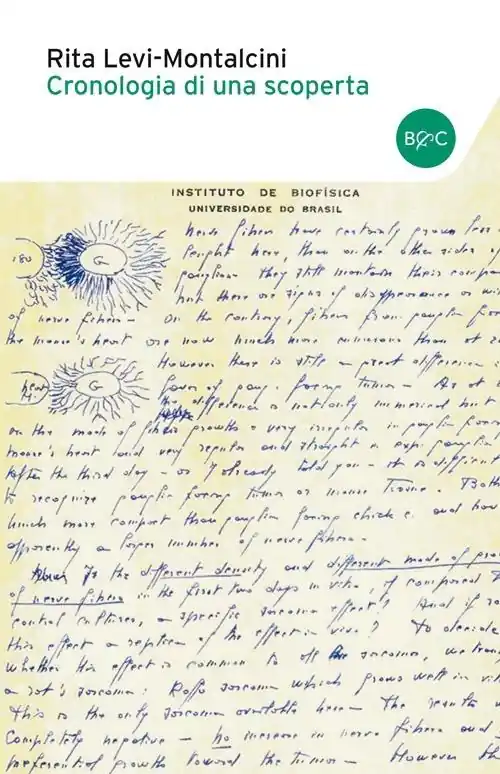 Rita Levi-Montalcini
Cronologia di una scoperta
B&C
INSTITUTO DE BIOFÍSICA
UNIVERSIDADE DO BRASIL
nerve fibers have certainly grown less
lenght here, than on the other sides of
180
G
ganglion. They still maintain their
but there are signs of disappearance or
of nerve fibers — On the contrary, fibers from ganglia
the mouse's heart are now much more numerous than at
However there is still a great difference
heart
G
favor of gang. facing tumor — As at
the difference is not only numerical but
on the mode of fiber growth: very irregular in ganglia
mouse's heart and very regular and straight
After the third day — as I already told you — it is difficult
to recognize ganglia facing tumor or mouse tissue. Both
much more compact than ganglia facing chick c. and
apparently a larger number of nerve fibers —
Is the different density and different mode of
of nerve fibers in the first two days in vitro, if compared
control cultures, a specific sarcoma effect? And if
this effect a replica of the effect in vivo? To decide
whether this effect is common to all the sarcomas, we
a rat's sarcoma: sarcoma which grows well in
This is the only sarcoma available here — The results
completely negative — no increase in nerve fibers and
preferential growth toward the tumor — However